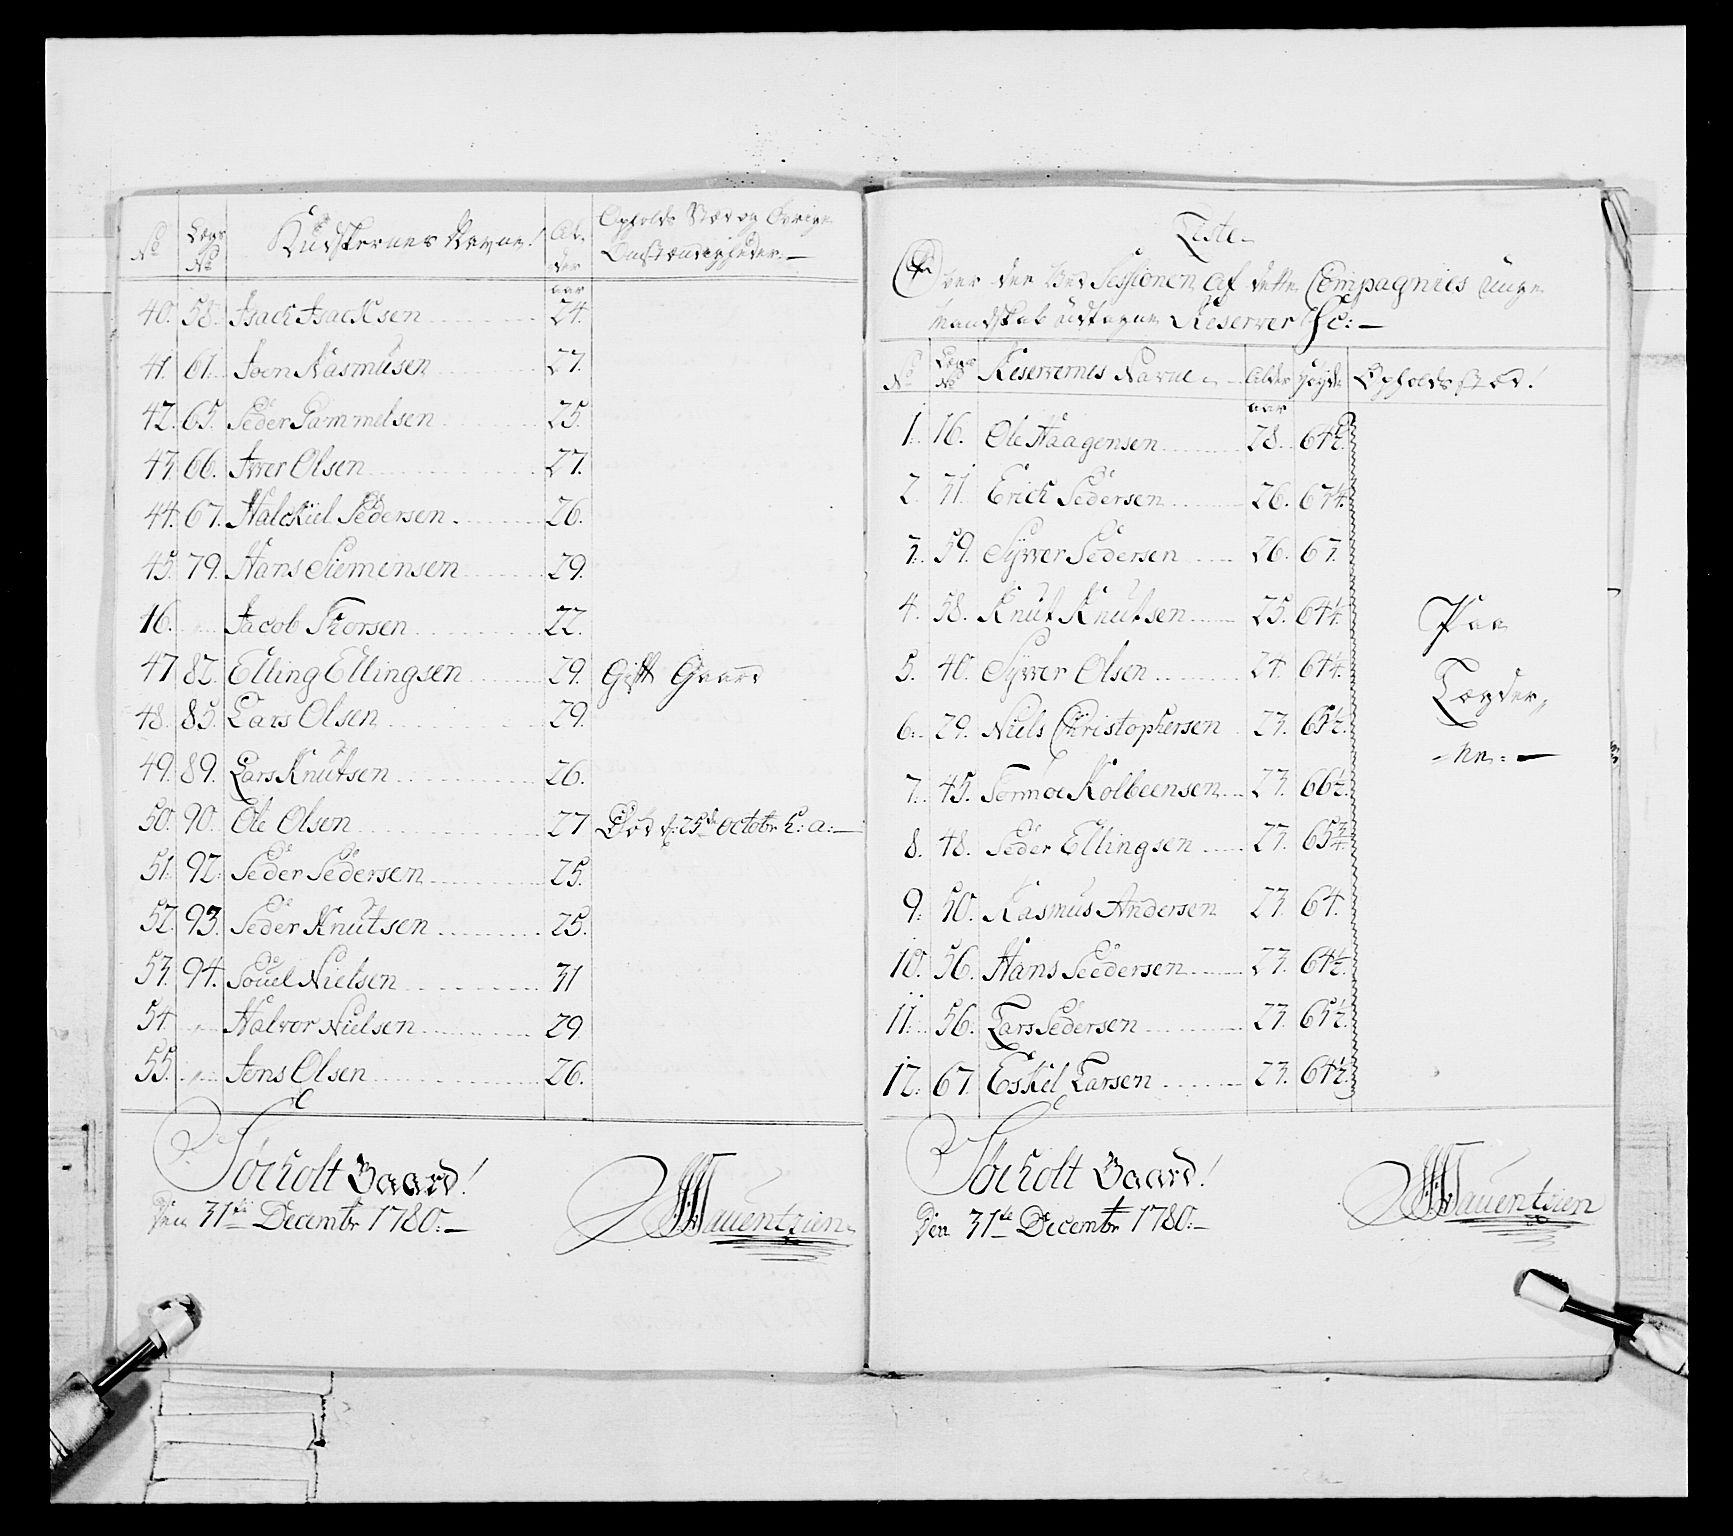 No Lægs No Kudskernes Navne! Alder Opholds Stæd og Øvrige Omstændigheder. —
aar
40. 58. Isach Isachsen 24.
41. 61. Joen Rasmusen 27.
42. 65. Peder Gammelsen 25.
43. 66. Iver Olsen 27.
44. 67. Halckiel Pedersen 26.
45. 79. Hans Siemensen 29.
46. " Jacob Thorsen 22.
47 82. Elling Ellingsen 29. Gift Gaard
48. 85. Lars Olsen 29.
49. 89. Lars Knutsen 26.
50. 90. Ole Olsen 27 Død d: 25de Octobr h: a: —
51. 92. Peder Pedersen 25.
52. 93. Peder Knutsen 25.
53. 94. Pouel Nielsen 31
54. " Halvor Nielsen 29
55. " Jens Olsen 26.
Sørholt Gaard!
Den 31te Decembr 1780. —
Wauentzien
Liste
Over den Ved Sessionen af dette Compagnies unge
Mandskab udtagne Reserver &c: —
No Lægs No Reservernes Navne Alder Høyde Opholds stæd!
aar
1. 16. Ole Haagensen 28. 64½.
2. 31. Erich Pedersen 26. 63¼.
3. 59. Syver Pedersen 26. 63.
4. 58. Knut Knutsen 25. 64¼.
5. 40. Syver Olsen 24. 64¼.
6. 29. Niels Christophersen 23. 65½.
7. 45. Tormoe Kolbeensen 23. 66½.
8. 48. Peder Ellingsen 23. 65¾.
9. 50. Rasmus Andersen 23. 64.
10. 56. Hans Peedersen 23. 64½.
11. 56. Lars Pedersen 23. 65½.
12. 67. Eskel Larsen 23. 64½.
Paa
Lægder,
ne. —
Sørholt Gaard!
Den 31te Decembr 1780. —
Wauentzien